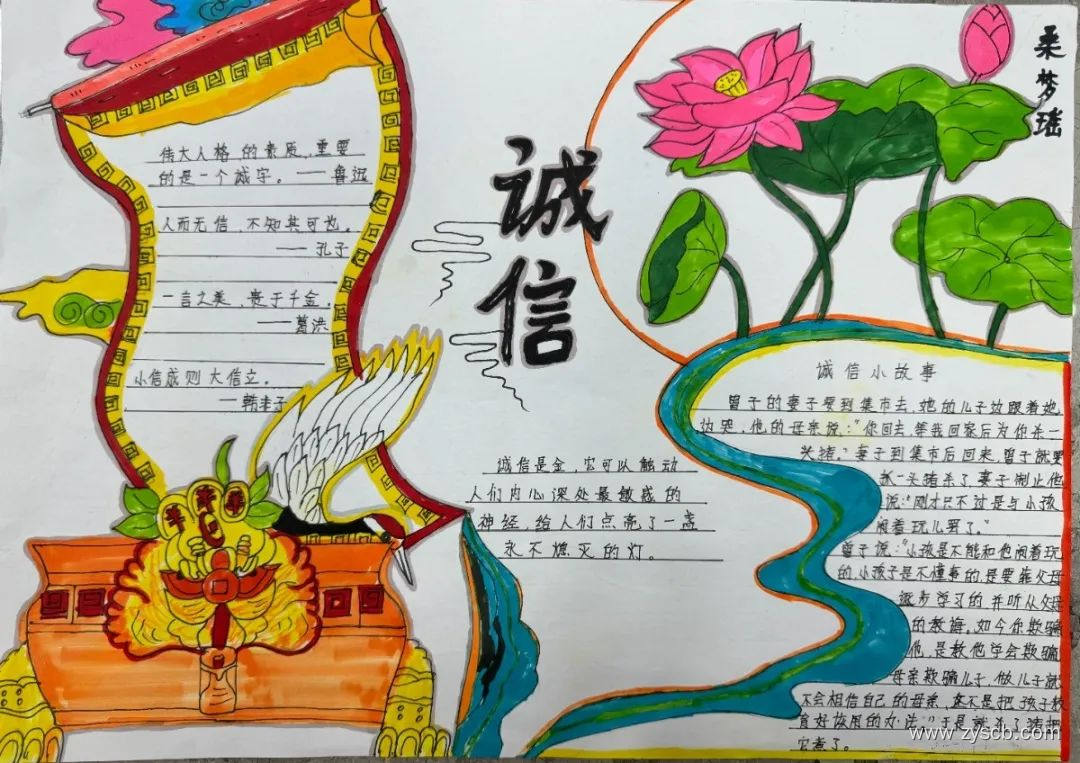 伟大人格的素质，重要
的是一个诚字。——鲁迅
人而无信，不知其可也。
——孔子
一言之美，贵于千金。
——葛洪
小信成则大信立。
——韩非子
诚
信
诚信是金，它可以触动
人们内心深处最敏感的
神经，给人们点亮了一盏
永不熄灭的灯。
桑梦瑶
诚信小故事
曾子的妻子要到集市去，她的儿子边跟着她
边哭，他的母亲说：“你回去，等我回家后为你杀一
头猪。”妻子到集市后回来，曾子就要
杀一头猪杀了，妻子制止他
说：“刚才只不过是与小孩
闹着玩儿罢了。”
曾子说：“小孩是不能和他闹着玩
的，小孩子是不懂事的，是要靠父母
逐步学习的，并听从父母
的教诲，如今你欺骗
他，是教他学会欺骗
母亲欺骗儿子，做儿子就
不会相信自己的母亲，这不是把孩子教
育好该用的办法。”于是就杀了猪把
它煮了。
www.zyscb.com